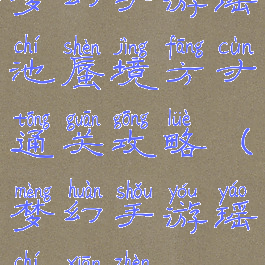 梦幻手游瑶
chí shèn jìng fāng cùn
池蜃境方寸
tōng guān gōng lüè
通关攻略（
mèng huàn shǒu yóu yáo
梦幻手游瑶
chí xiān zhèn